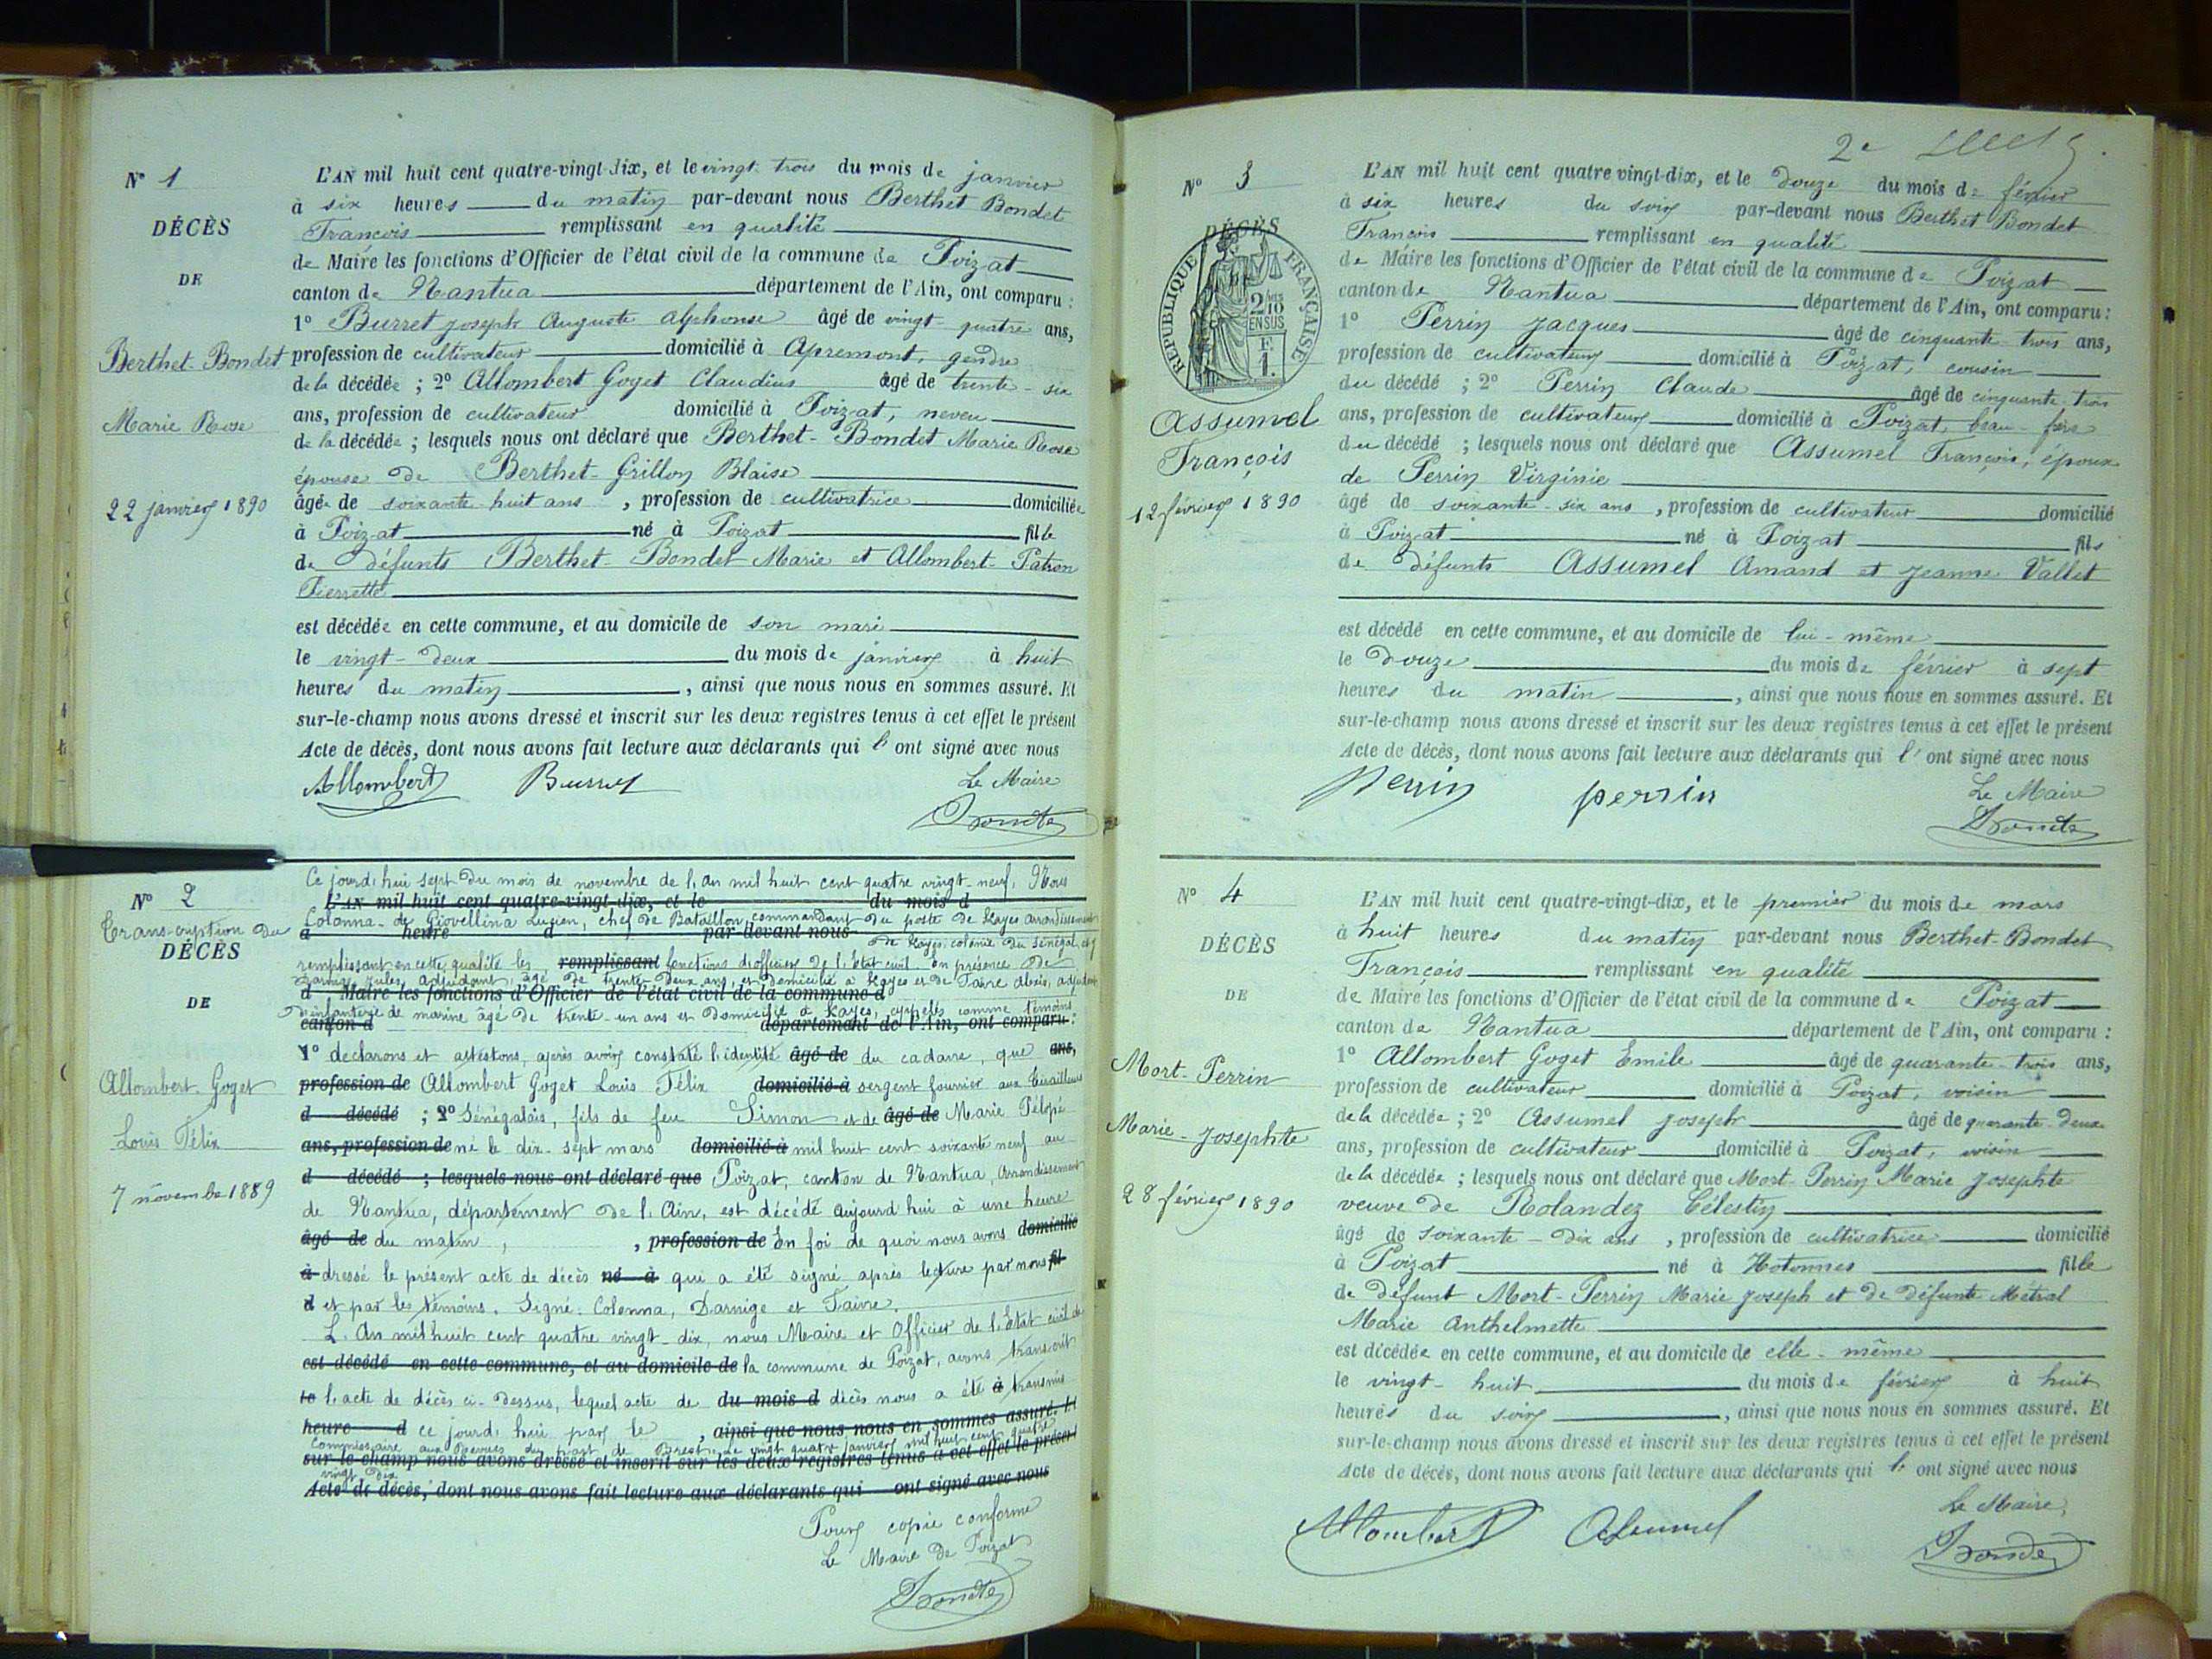 N° 1
DÉCÈS
DE
Berthet-Bondet
Marie Rose
22 janvier 1890
L'AN mil huit cent quatre-vingt-dix, et le vingt trois du mois de janvier
à six heures du matin par-devant nous Berthet Bondet
François remplissant en qualité
de Maire les fonctions d'Officier de l'état civil de la commune de Poizat
canton de Nantua département de l'Ain, ont comparu :
1° Burret Joseph Auguste Alphonse âgé de vingt-quatre ans,
profession de cultivateur domicilié à Apremont, gendre
de la décédée ; 2° Allombert Goget Claudius âgé de trente-six
ans, profession de cultivateur domicilié à Poizat, neveu
de la décédée ; lesquels nous ont déclaré que Berthet-Bondet Marie Rose
épouse de Berthet-Grillon Blaise
âgée de soixante huit ans, profession de cultivatrice domiciliée
à Poizat né à Poizat fille
de défunts Berthet-Bondet Marie et Allombert-Patron
Pierrette
est décédée en cette commune, et au domicile de son mari
le vingt-deux du mois de janvier à huit
heures du matin, ainsi que nous nous en sommes assuré. Et
sur-le-champ nous avons dressé et inscrit sur les deux registres tenus à cet effet le présent
Acte de décès, dont nous avons fait lecture aux déclarants qui l'ont signé avec nous
Allombert Burret Le Maire
Bondet
N° 2
Transcription du
DÉCÈS
DE
Allombert-Goget
Louis Félix
7 novembre 1889
Ce jourd'hui sept du mois de novembre de l'an mil huit cent quatre vingt-neuf, Nous
L'AN mil huit cent quatre-vingt-dix, et le du mois d
Colonna de Giovellina Lucien, chef de Bataillon, commandant du poste de Kayes arrondissement
à heure d par-devant nous
de Kayes, colonie du Sénégal, et
remplissant en cette qualité les remplissant fonctions d'officier de l'Etat civil. En présence de
Jules, adjudant, âgé de trente-deux ans et domicilié à Kayes et de Faivre Alexis, adjudant
d Maire les fonctions d'Officier de l'état civil de la commune d
d'infanterie de marine âgé de trente-un ans et domicilié à Kayes, appelés comme témoins
canton d département de l'Ain, ont comparu :
1° déclarons et attestons, après avoir constaté l'identité âgé de du cadavre, que ans,
profession de Allombert Goget Louis Félix domicilié à sergent fourrier aux tirailleurs
d décédé ; 2° Sénégalais, fils de feu Simon et de âgé de Marie Pélopé
ans, profession de né le dix-sept mars domicilié à mil huit cent soixante neuf au
d décédé ; lesquels nous ont déclaré que Poizat, canton de Nantua, arrondissement
de Nantua, département de l'Ain, est décédé aujourd'hui à une heure
âgé de du matin, , profession de En foi de quoi nous avons domicilié
à dressé le présent acte de décès né à qui a été signé après lecture par nous fil
d et par les témoins. Signé : Colonna, Darnige et Faivre.
L'An mil huit cent quatre vingt-dix, nous Maire et Officier de l'Etat civil de
est décédé en cette commune, et au domicile de la commune de Poizat, avons transcrit
le l'acte de décès ci-dessus, lequel acte de du mois d décès nous a été à transmis
heure d ce jourd'hui par le , ainsi que nous nous en sommes assuré. Et
Commissaire aux Revues du port de Brest. Le vingt quatre janvier mil huit cent quatre
sur-le-champ nous avons dressé et inscrit sur les deux registres tenus à cet effet le présent
vingt dix
Acte de décès, dont nous avons fait lecture aux déclarants qui ont signé avec nous
Pour copie conforme
Le Maire de Poizat
Bondet
2e
N° 3
DÉCÈS
RÉPUBLIQUE FRANÇAISE
2/10 EN SUS
F. 1.
Assumel
François
12 février 1890
L'AN mil huit cent quatre-vingt-dix, et le douze du mois de février
à six heures du soir par-devant nous Berthet Bondet
François remplissant en qualité
de Maire les fonctions d'Officier de l'état civil de la commune de Poizat
canton de Nantua département de l'Ain, ont comparu :
1° Perrin Jacques âgé de cinquante-trois ans,
profession de cultivateur domicilié à Poizat, cousin
du décédé ; 2° Perrin Claude âgé de cinquante-trois
ans, profession de cultivateur domicilié à Poizat, beau-frère
du décédé ; lesquels nous ont déclaré que Assumel François, époux
de Perrin Virginie
âgé de soixante-six ans, profession de cultivateur domicilié
à Poizat né à Poizat fils
de défunts Assumel Amand et Jeanne Vallet
est décédé en cette commune, et au domicile de lui-même
le douze du mois de février à sept
heures du matin, ainsi que nous nous en sommes assuré. Et
sur-le-champ nous avons dressé et inscrit sur les deux registres tenus à cet effet le présent
Acte de décès, dont nous avons fait lecture aux déclarants qui l'ont signé avec nous
Perrin perrin Le Maire
Bondet
N° 4
DÉCÈS
DE
Mort-Perrin
Marie-Josephte
28 février 1890
L'AN mil huit cent quatre-vingt-dix, et le premier du mois de mars
à huit heures du matin par-devant nous Berthet-Bondet
François remplissant en qualité
de Maire les fonctions d'Officier de l'état civil de la commune de Poizat
canton de Nantua département de l'Ain, ont comparu :
1° Allombert Goget Emile âgé de quarante-trois ans,
profession de cultivateur domicilié à Poizat, voisin
de la décédée ; 2° Assumel Joseph âgé de quarante-deux
ans, profession de cultivateur domicilié à Poizat, voisin
de la décédée ; lesquels nous ont déclaré que Mort-Perrin Marie Josephte
veuve de Rolandez Célestin
âgé de soixante-dix ans, profession de cultivatrice domicilié
à Poizat né à Hotonnes fille
de défunt Mort-Perrin Marie Joseph et de défunte Métral
Marie Anthelmette
est décédée en cette commune, et au domicile de elle-même
le vingt-huit du mois de février à huit
heures du soir, ainsi que nous nous en sommes assuré. Et
sur-le-champ nous avons dressé et inscrit sur les deux registres tenus à cet effet le présent
Acte de décès, dont nous avons fait lecture aux déclarants qui l'ont signé avec nous
Allombert Assumel Le Maire,
Bondet